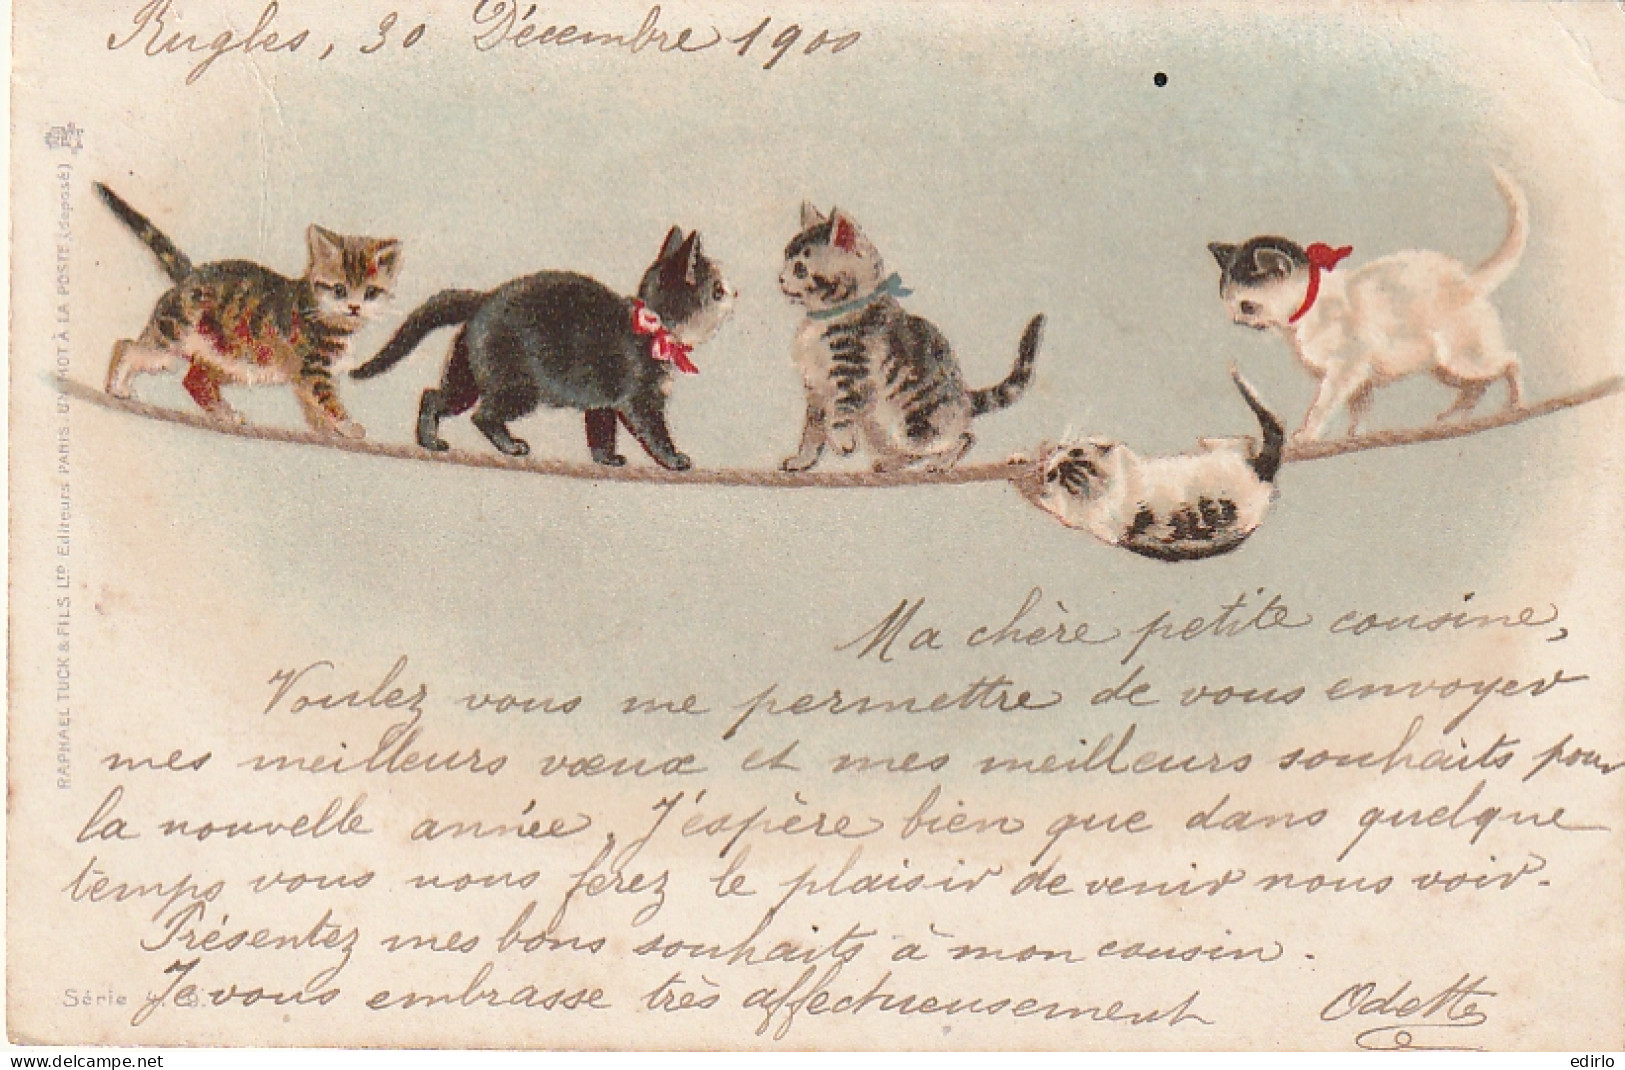 Rugles, 30 Décembre 1900
RAPHAEL TUCK & FILS LTD Editeurs PARIS UN MOT À LA POSTE (déposé)
Ma chère petite cousine,
Voulez vous me permettre de vous envoyer
mes meilleurs vœux et mes meilleurs souhaits pour
la nouvelle année. J'éspère bien que dans quelque
temps vous nous ferez le plaisir de venir nous voir.
Présentez mes bons souhaits à mon cousin.
Je vous embrasse très affectueusement Odette
Série
delcampe.net
edirlo